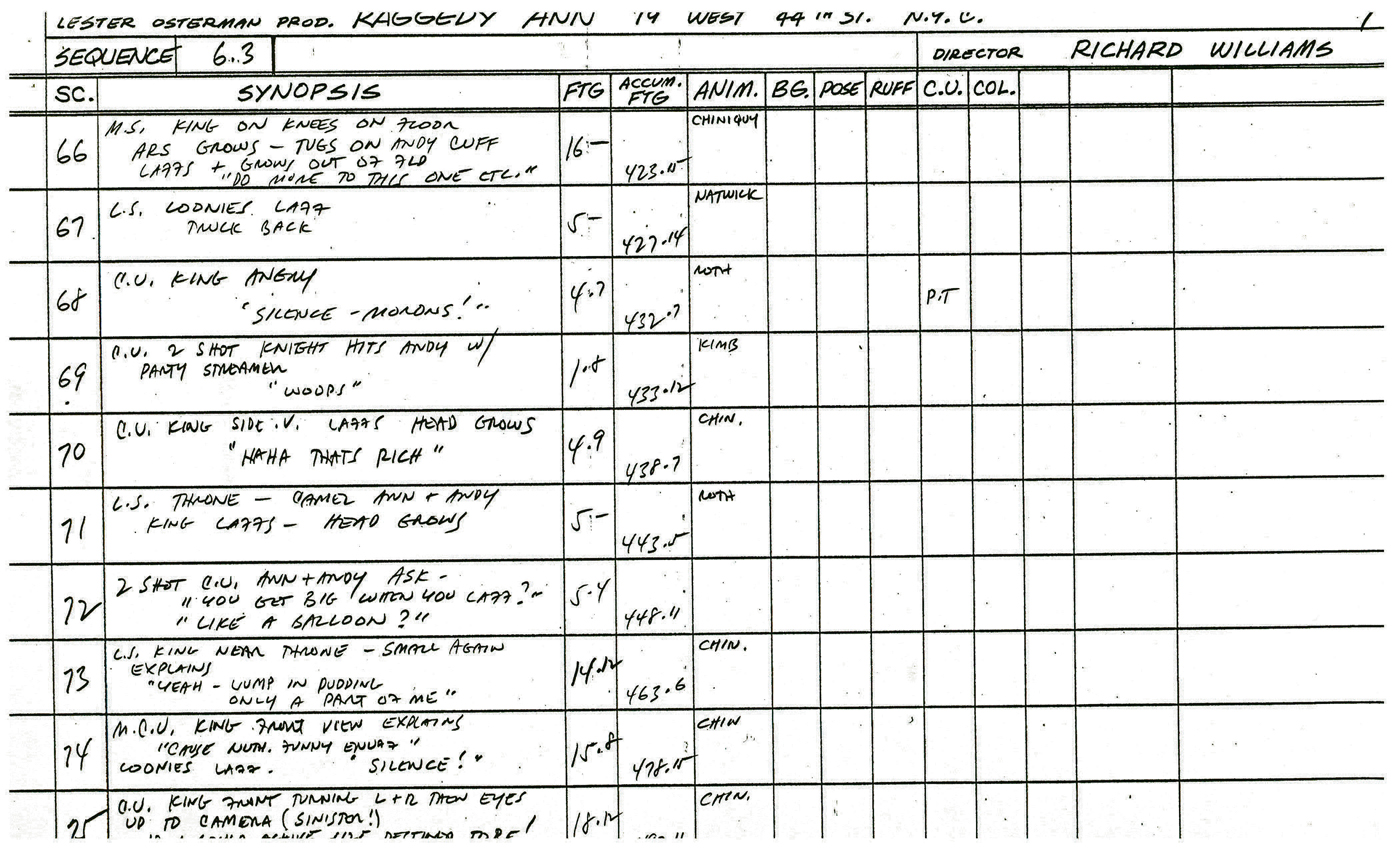 LESTER OSTERMAN PROD. RAGGEDY ANN 19 WEST 44TH ST. N.Y.C. 1
SEQUENCE 6.3 DIRECTOR RICHARD WILLIAMS
SC. SYNOPSIS FTG ACCUM. FTG ANIM. BG. POSE RUFF C.U. COL.
66 M.S. KING ON KNEES ON FLOOR 16.- 423.15 CHINIQUY
ARS GROWS - TUGS ON ANDY CUFF
LAFFS + GROWS OUT OF FLD
"DO MORE TO THIS ONE ETC."
67 L.S. LOONIES LAFF 5.- 427.14 NATWICK
TRUCK BACK
68 C.U. KING ANGRY 4.7 432.7 ROTH P.T
"SILENCE - MORONS!"
69 C.U. 2 SHOT KNIGHT HITS ANDY W/ 1.8 433.12 KIMB
PARTY STREAMER
"WOOPS"
70 C.U. KING SIDE.V. LAFFS HEAD GROWS 4.9 438.7 CHIN.
"HAHA THATS RICH"
71 L.S. THRONE - CAMEL ANN + ANDY 5.- 443.5 ROTH
KING LAFFS - HEAD GROWS
72 2 SHOT C.U. ANN + ANDY ASK - 5.4 448.11
"YOU GET BIG WHEN YOU LAFF?"
"LIKE A BALLOON?"
73 L.S. KING NEAR THRONE - SMALL AGAIN 14.12 463.6 CHIN.
EXPLAINS
"YEAH - LUMP IN PUDDING
ONLY A PART OF ME"
74 M.C.U. KING FRONT VIEW EXPLAINS 15.8 478.15 CHIN
"CAUSE NUTH. FUNNY ENUFF"
LOONIES LAFF. "SILENCE!"
75 C.U. KING FRONT TURNING L+R THEN EYES 18.12 CHIN.
UP TO CAMERA (SINISTOR!)